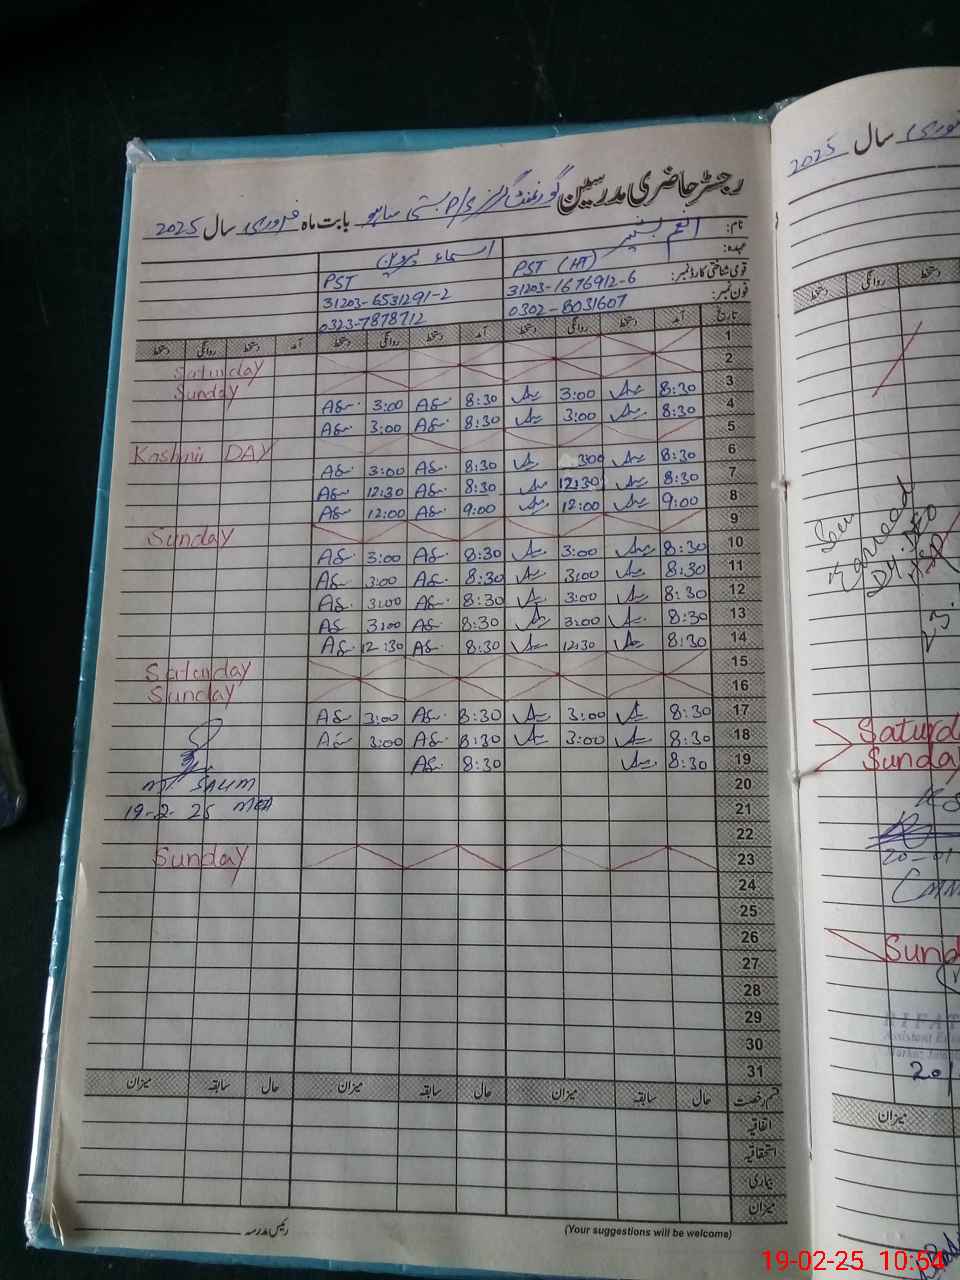 رجسٹر حاضری مدرسین گورنمنٹ گرلز P/S بستی ساہو بابت ماہ فروری سال 2025
نام: انعم بشیر اسماء پروین
عہدہ: PST (HT) PST
قومی شناختی کارڈ نمبر: 31203-1676912-6 31203-6531291-2
فون نمبر: 0302-8031607 0323-7878712
تاریخ آمد دستخط روانگی دستخط آمد دستخط روانگی دستخط آمد دستخط روانگی دستخط
1 Saturday
2 Sunday
3 8:30 3:00 8:30 AS 3:00 AS
4 8:30 3:00 8:30 AS 3:00 AS
5 Kashmir DAY
6 8:30 3:00 8:30 AS 3:00 AS
7 8:30 12:30 8:30 AS 12:30 AS
8 9:00 12:00 9:00 AS 12:00 AS
9 Sunday
10 8:30 3:00 8:30 AS 3:00 AS
11 8:30 3:00 8:30 AS 3:00 AS
12 8:30 3:00 8:30 AS 3:00 AS
13 8:30 3:00 8:30 AS 3:00 AS
14 8:30 12:30 8:30 AS 12:30 AS
15 Saturday
16 Sunday
17 8:30 3:00 8:30 AS 3:00 AS
18 8:30 3:00 8:30 AS 3:00 AS
19 8:30 8:30 AS
20
21 19-2-25
22
23 Sunday
24
25
26
27
28
29
30
31
قسم رخصت حال سابقہ میزان حال سابقہ میزان حال سابقہ میزان
اتفاقیہ
استحقاقیہ
بیماری
میزان
رئیس مدرسہ
(Your suggestions will be welcome)
سال 2025
دستخط روانگی دستخط
Dy. DEO
Sunday
میزان
19-02-25 10:54